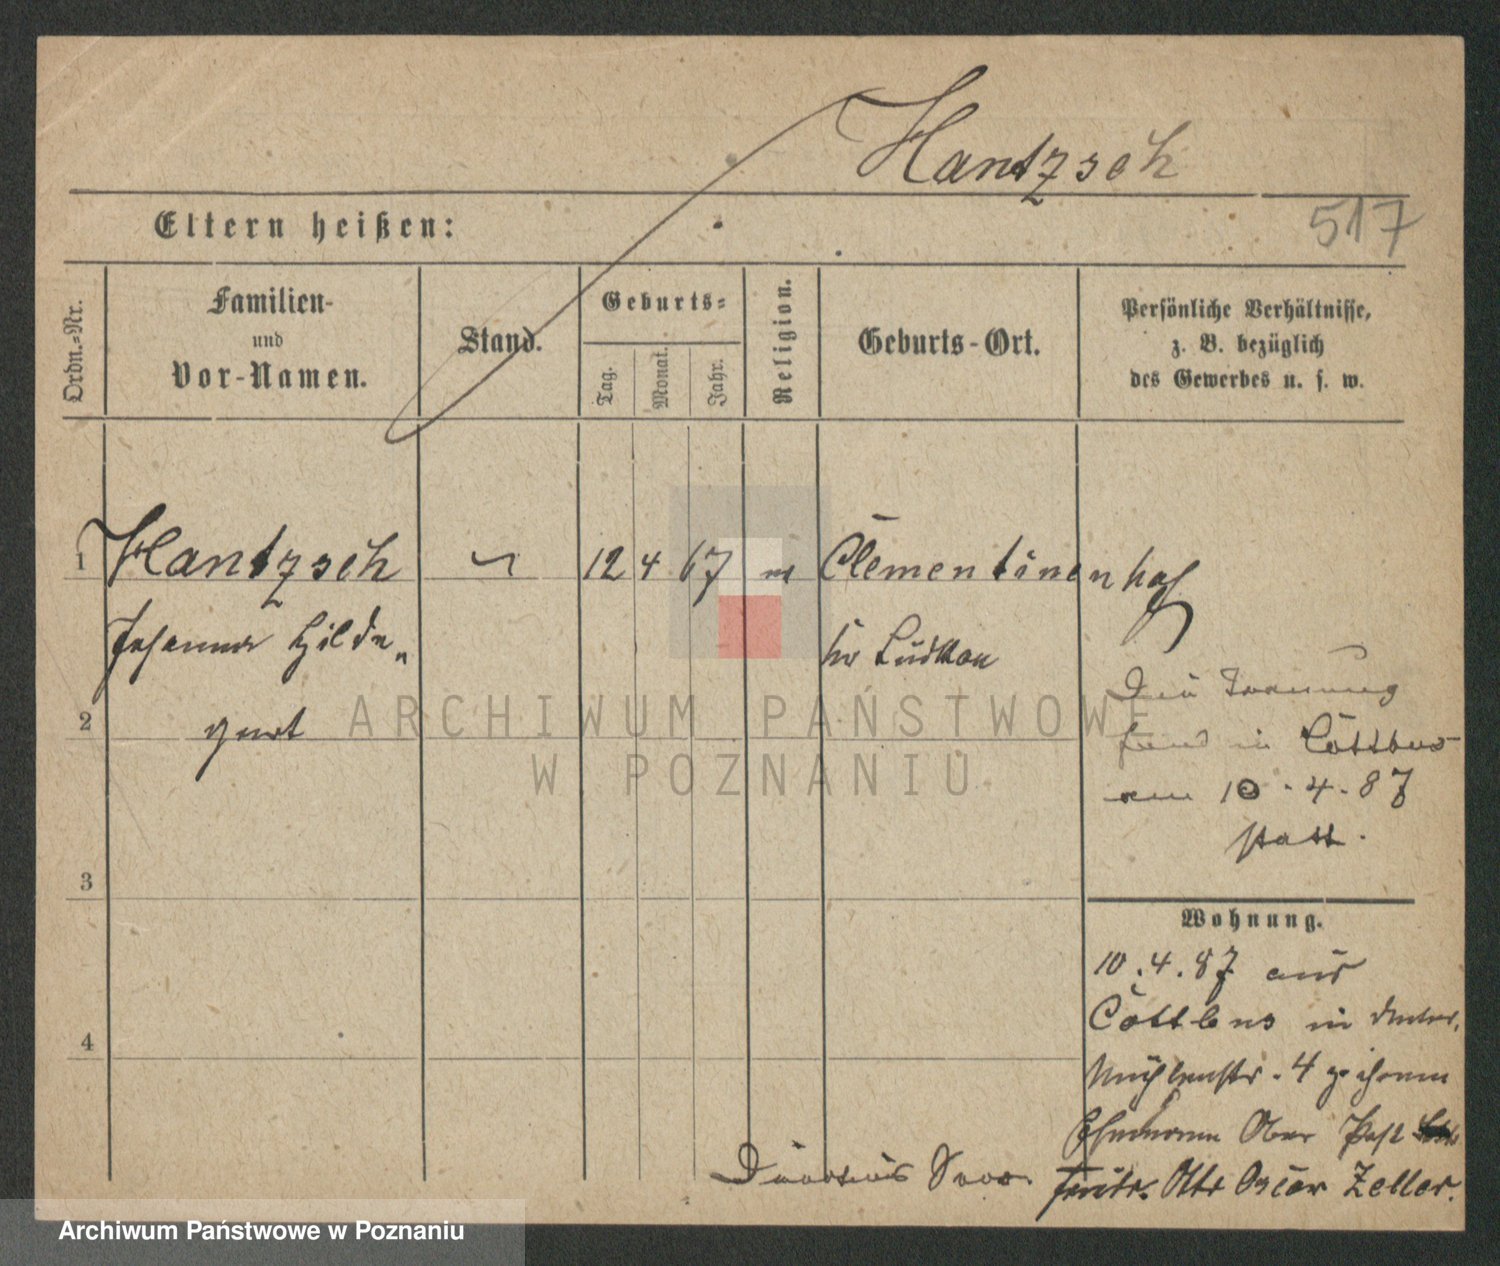 Hantzsch
517
Eltern heißen:
Ordn.-Nr.
Familien-
und
Vor-Namen.
Stand.
Geburts-
Tag.
Monat.
Jahr.
Religion.
Geburts-Ort.
Persönliche Verhältnisse,
z. B. bezüglich
des Gewerbes u. s. w.
1 Hantzsch 12 4 67 Clementinenhof
Johanna Hilde„
gart
bei
2
Die Trauung
fand in Cottbus
am 10.4.87
statt.
3
Wohnung.
10.4.87 aus
Cottbus in
4
Mühlenstr. 4 z. ihrem
Ehemann Ober Post
Otto Oscar Zeller.
ARCHIWUM PAŃSTWOWE
W POZNANIU
Archiwum Państwowe w Poznaniu